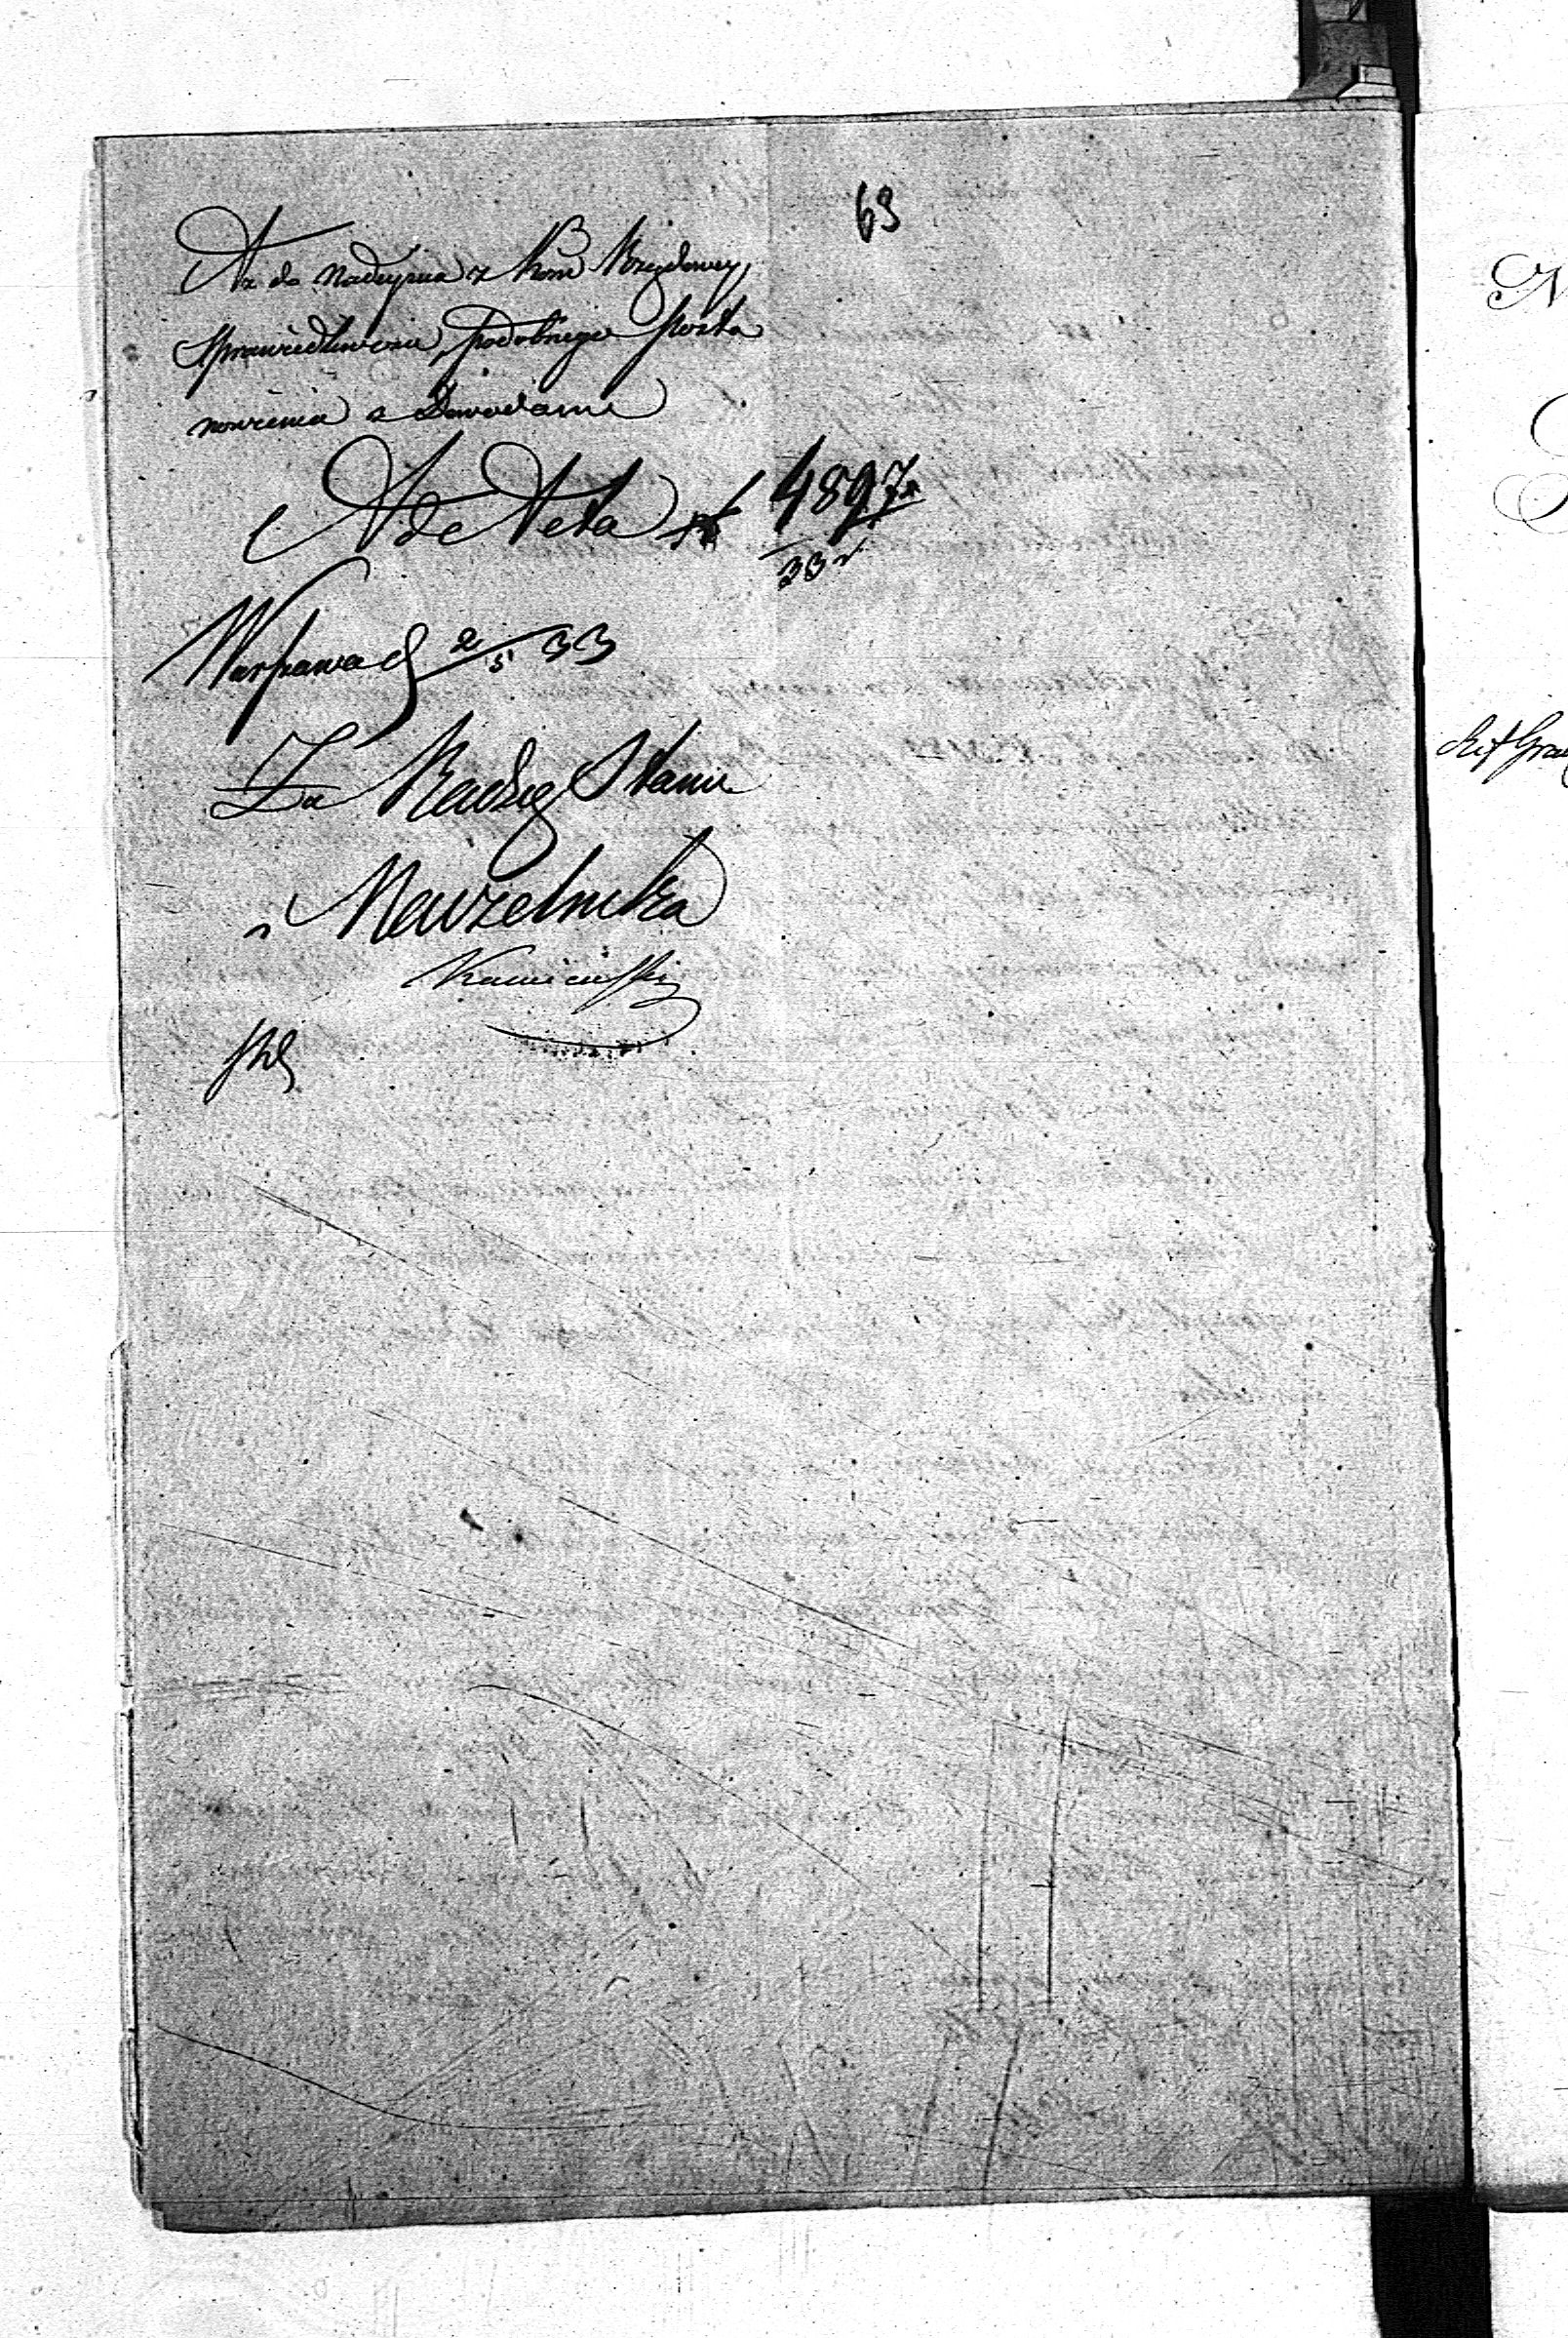 63
Aż do nadeyścia z Kom Rządowey
Sprawiedliwości, podobnego Posta
nowienia z Dowodami
Ad Acta
4897
33
Warszawa d 2/5 33
Za Radzcę Stanu
Naczelnika
Kamieński